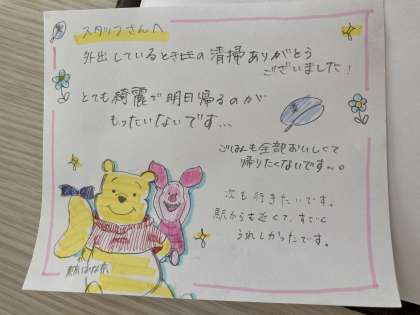 スタッフさんへ
外出しているときの清掃ありがとう
ございました!
とても綺麗で明日帰るのが
もったいないです...
ごはんも全部おいしくて
帰りたくないです〜。
次も行きたいです。
駅からも近くて、すごく
うれしかったです。